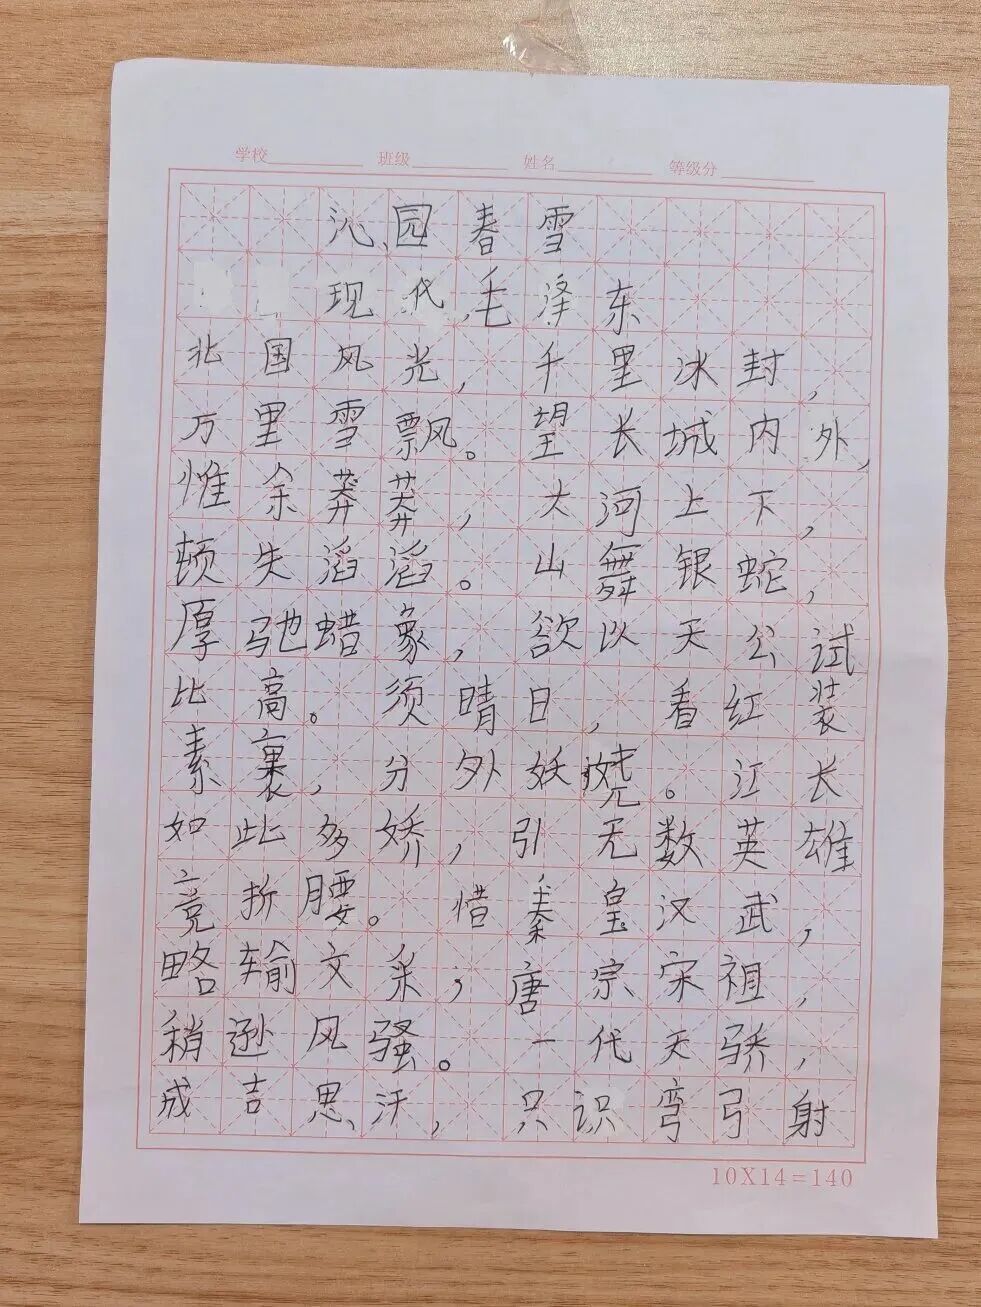 学校 班级 姓名 等级分
沁园春雪
现代,毛泽东
北国风光,千里冰封,
万里雪飘。望长城内外,
惟余莽莽,大河上下,
顿失滔滔。山舞银蛇,
厚驰蜡象,欲以天公试
比高。须晴日,看红装
素裹,分外妖娆。江长
如此多娇,引无数英雄
竞折腰。惜秦皇汉武,
略输文采;唐宗宋祖,
稍逊风骚。一代天骄,
成吉思汗,只识弯弓射
10X14=140